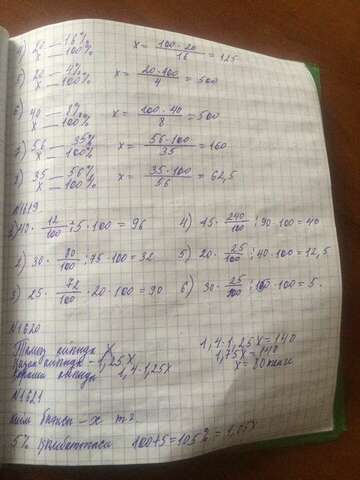 4) 20 — 16%
x — 100%
x = 100·20 / 16 = 125
5) 20 — 4%
x — 100%
x = 20·100 / 4 = 500
6) 40 — 8%
x — 100%
x = 100·40 / 8 = 500
7) 56 — 35%
x — 100%
x = 56·100 / 35 = 160
8) 35 — 56%
x — 100%
x = 35·100 / 56 = 62,5
№1619
1) 40 · 12/100 : 5 · 100 = 96
4) 15 · 240/100 : 90 · 100 = 40
2) 30 · 80/100 : 75 · 100 = 32
5) 20 · 25/100 : 40 · 100 = 12,5
3) 25 · 72/100 · 20 · 100 = 90
6) 30 · 25/100 : 100 = 5.
№1620
x
1,4·1,25x = 140
1,25x
1,75x = 140
1,4·1,25x
x = 80
№1621
— x тг.
5% 100+5 = 105% = 1,05x